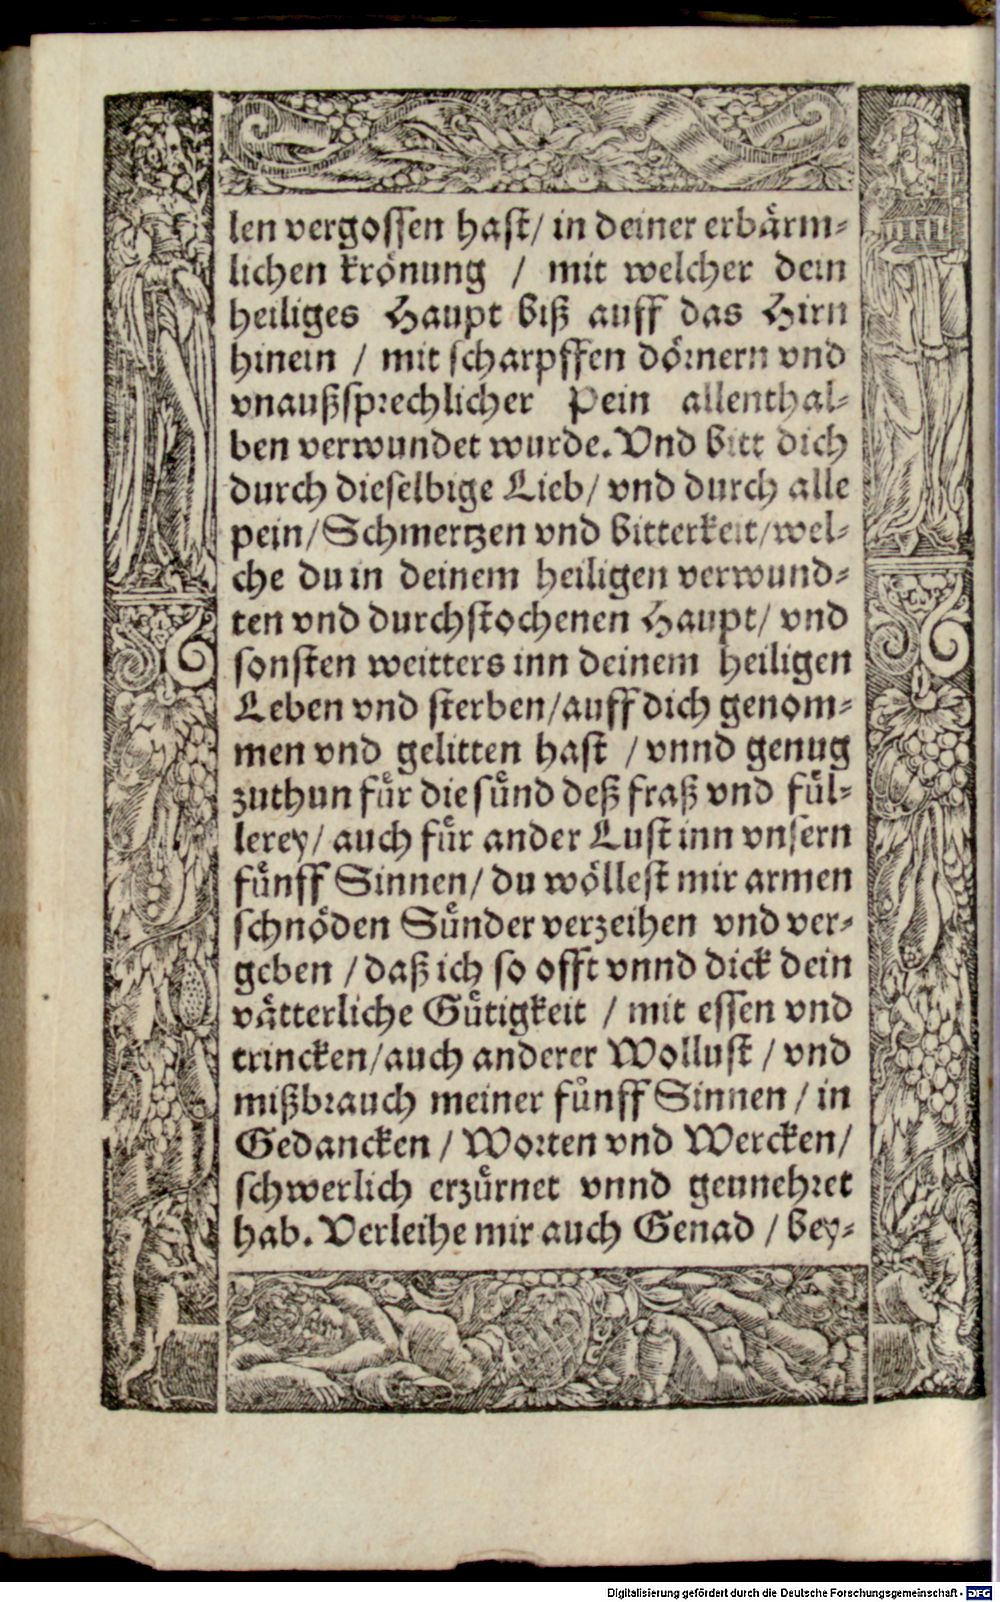 len vergossen hast/ in deiner erbärm-
lichen krönung / mit welcher dein
heiliges Haupt biß auff das Hirn
hinein / mit scharpffen dörnern vnd
vnaußsprechlicher Pein allenthal-
ben verwundet wurde. Vnd bitt dich
durch dieselbige Lieb/ vnd durch alle
pein/ Schmertzen vnd bitterkeit/ wel-
che du in deinem heiligen verwund-
ten vnd durchstochenen Haupt/ vnd
sonsten weitters inn deinem heiligen
Leben vnd sterben/ auff dich genom-
men vnd gelitten hast / vnnd genug
zuthun für die sünd deß fraß vnd fül-
lerey/ auch für ander Lust inn vnsern
fünff Sinnen/ du wöllest mir armen
schnöden Sünder verzeihen vnd ver-
geben / daß ich so offt vnnd dick dein
vätterliche Gütigkeit / mit essen vnd
trincken/ auch anderer Wollust / vnd
mißbrauch meiner fünff Sinnen / in
Gedancken / Worten vnd Wercken/
schwerlich erzürnet vnnd geunehret
hab. Verleihe mir auch Genad / bey-
Digitalisierung gefördert durch die Deutsche Forschungsgemeinschaft - DFG